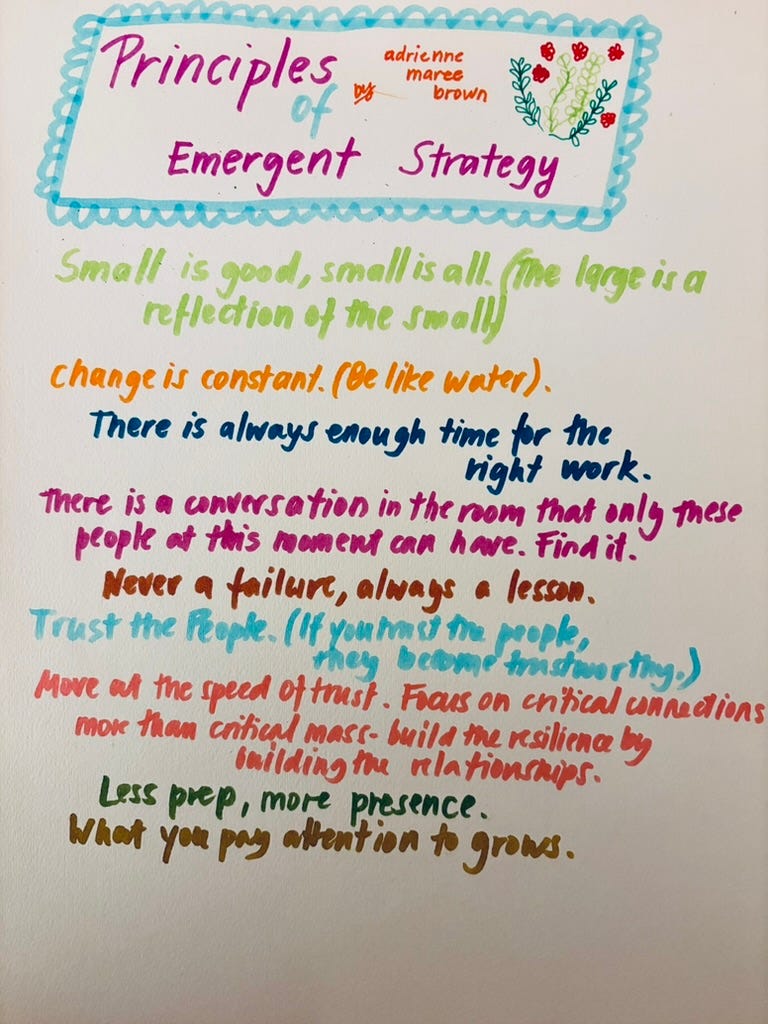 Principles
of
by adrienne
maree
brown
Emergent Strategy
Small is good, small is all. (The large is a
reflection of the small)
Change is constant. (Be like water).
There is always enough time for the
right work.
There is a conversation in the room that only these
people at this moment can have. Find it.
Never a failure, always a lesson.
Trust the People. (If you trust the people,
they become trustworthy.)
Move at the speed of trust. Focus on critical connections
more than critical mass- build the resilience by
building the relationships.
Less prep, more presence.
What you pay attention to grows.